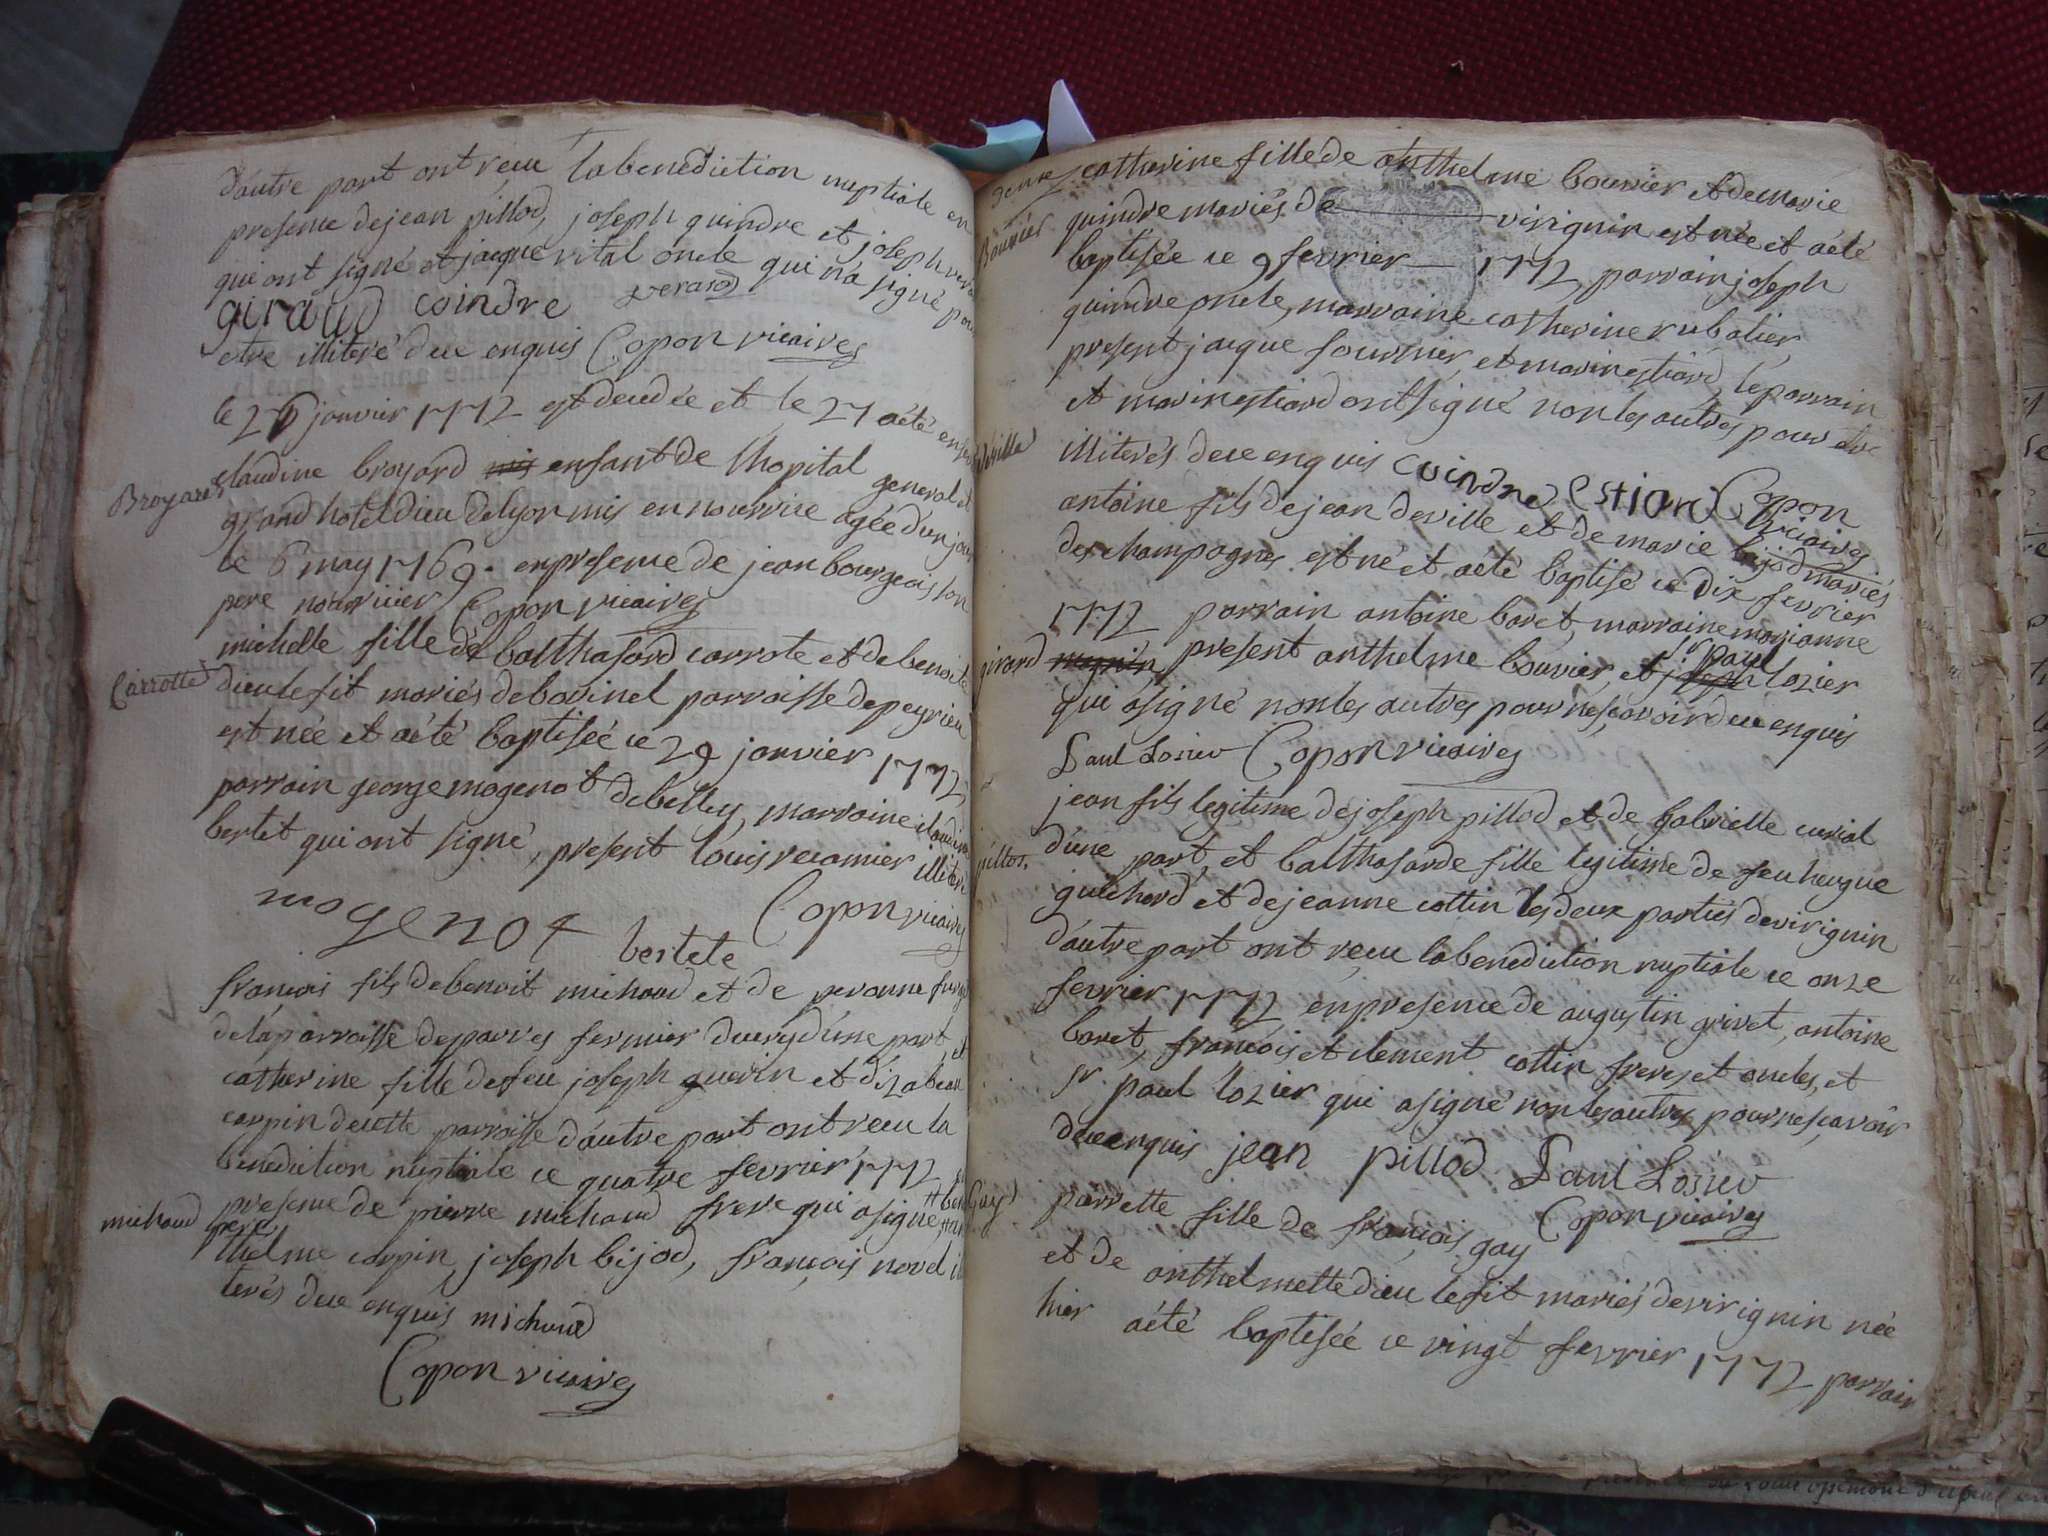 d'autre part ont reçu la benediction nuptiale en
presence de jean pillod, joseph quindre et joseph
qui ont signé et jaque vital oncle qui n'a signé pour
giraud coindre verard
etre illiteré de ce enquis Copon vicaires
le 26 janvier 1772 est decedée et le 27 a été
Broyard
claudine broyard nis enfant de lhopital general et
grand hotel dieu de lyon mis en nourrice agée d'un jour
le 6 may 1769. en presence de jean bourgeois son
pere nourricier Copon vicaires
michelle fille de balthasard carrote et de benoite
Carrotte
dieulefit mariés de bovinel parroisse de peyrieu
est née et a été baptisée ce 29 janvier 1772,
parrain george mogenot de belley, marraine claudine
bertet qui ont signé, present louis recamier illiteré
mogenot bertete Copon vicaires
françois fils de benoit michaud et de peronne
de la parroisse de parves fermier d'une part, et
catherine fille de feu joseph guerin et d'izabeau
carpin de cette parroisse d'autre part ont reçu la
benediction nuptiale ce quatre fevrier 1772 en
michaud
presence de pierre michaud frere qui a signé,
pere
thelme carpin, joseph bijod, françois novel
terés de ce enquis michaud
Copon vicaires
catherine fille de anthelme bouvier et de marie
Bouvier
quindre mariés de virignin est née et a été
baptisée ce 9 fevrier 1772, parrain joseph
quindre oncle, marraine catherine rubalier,
present jaque fournier, et marin estiard, le parrain
et marin estiard ont signé non les autres pour etre
deville
illiterés de ce enquis coindre estiard Copon
vicaires
antoine fils de jean deville et de marie bijod mariés
des champagnes est né et a été baptisé ce dix fevrier
1772 parrain antoine baret, marraine marianne
sr paul
girard magnin, present anthelme bouvier, et joseph lozier
qui a signé non les autres pour ne sçavoir de ce enquis
Paul Losier Copon vicaires
jean fils legitime de joseph pillod et de gabrielle curial
pillod.
d'une part, et balthasarde fille legitime de feu heugue
guichard et de jeanne cottin les deux parties de virignin
d'autre part ont reçu la benediction nuptiale ce onze
fevrier 1772 en presence de augustin grivet, antoine
baret, françois et clement cottin freres et oncles, et
sr paul lozier qui a signé non les autres pour ne sçavoir
de ce enquis jean pillod Paul Losier
Copon vicaires
Gay
parrette fille de françois gay
et de anthelmette dieu lefit mariés de virignin née
hier a été baptisée ce vingt fevrier 1772 parrain